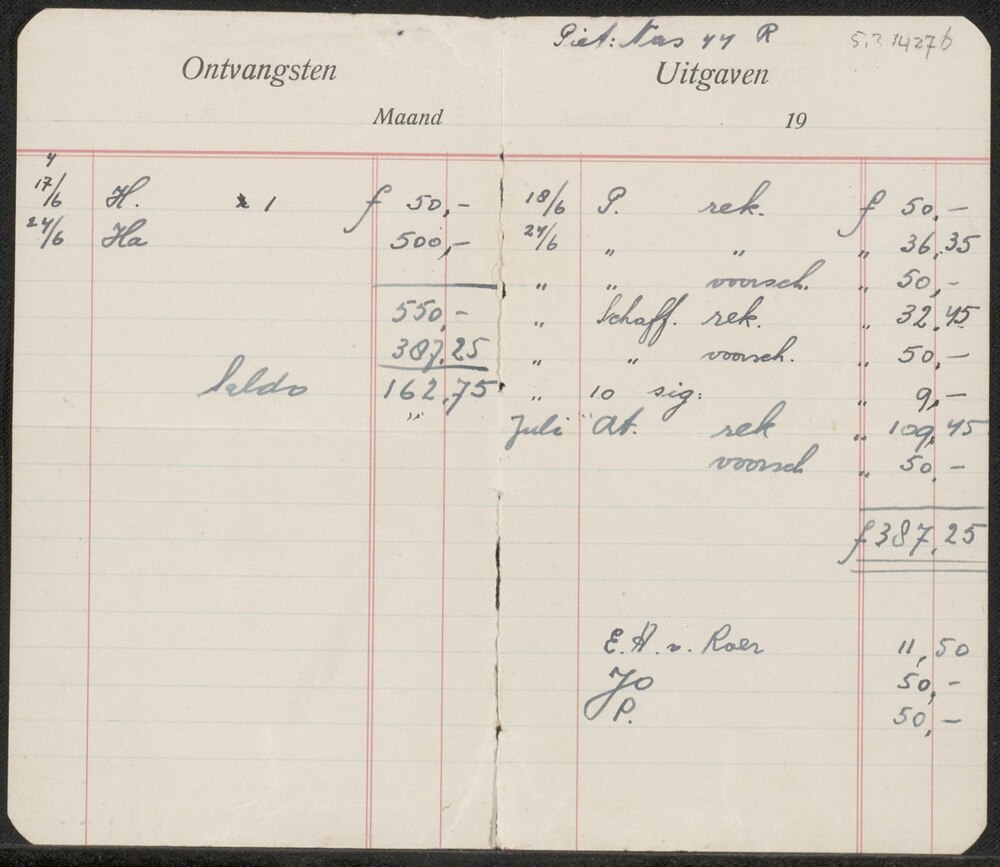 Piet: Nas 44 R
Ontvangsten
Maand
17/6 H. 1 f 50,-
24/6 Ha 500,-
550,-
387,25
Saldo 162,75
Uitgaven
19
18/6 P. rek. f 50,-
24/6 „ „ „ 36,35
„ „ voorsch. „ 50,-
„ Schaff. rek. „ 32,45
„ „ voorsch. „ 50,-
„ 10 sig: „ 9,-
Juli At. rek „ 109,45
voorsch „ 50,-
f 387,25
E.H. v. Roer 11,50
Jo 50,-
P. 50,-